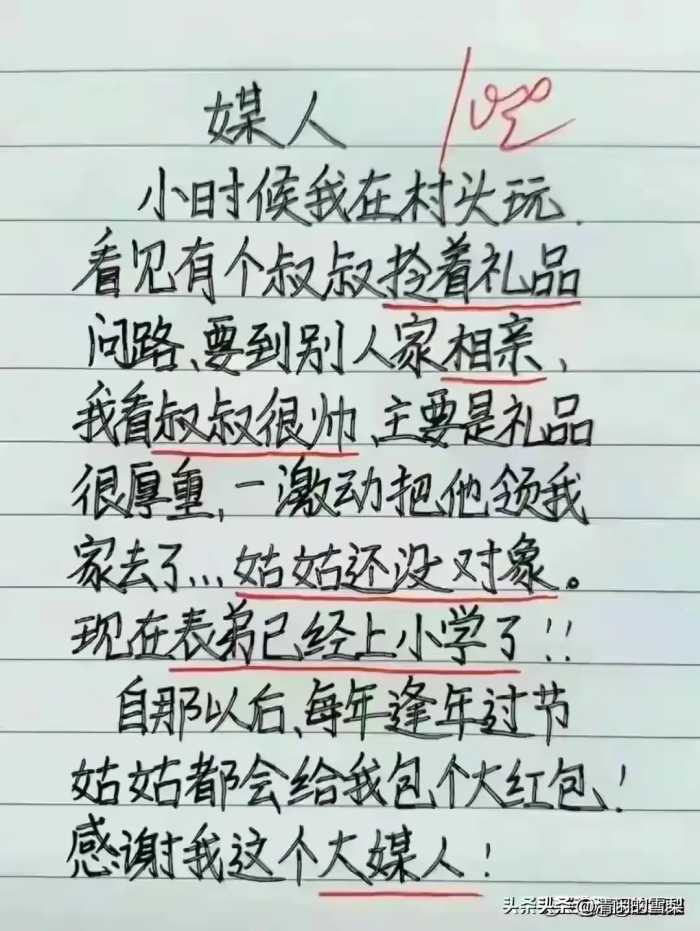 媒人
100
小时候我在村头玩、
看见有个叔叔拎着礼品
问路、要到别人家相亲、
我看叔叔很帅、主要是礼品
很厚重、一激动把他领我
家去了...姑姑还没对象。
现在表弟已经上小学了!!
自那以后、每年逢年过节
姑姑都会给我包个大红包!
感谢我这个大媒人!
头杀头杀@清函的雪梨